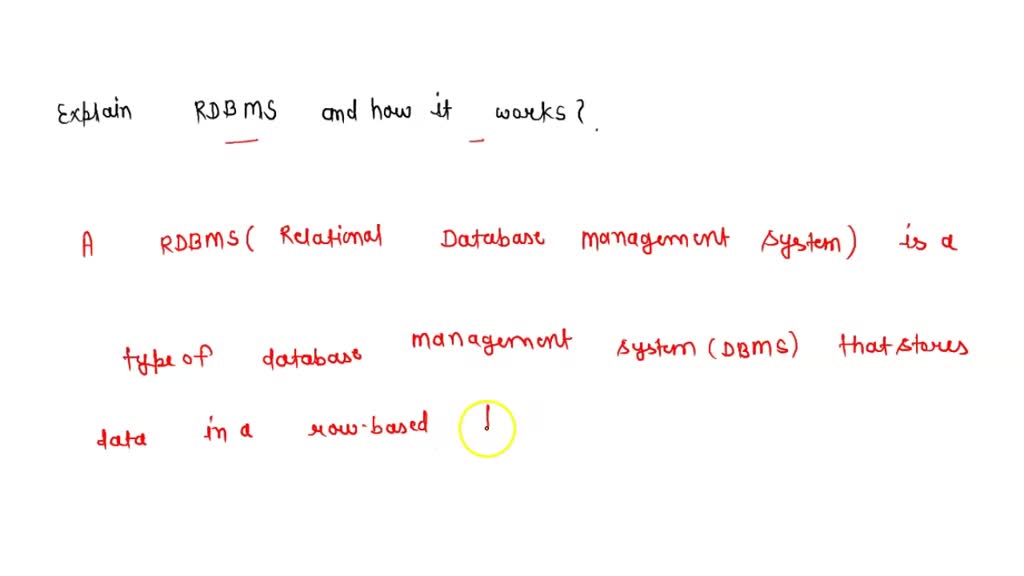 Explain RDBMS and how it works?.
A RDBMS( Relational Database management system) is a
type of database management system (DBMS) that stores
data in a row-based